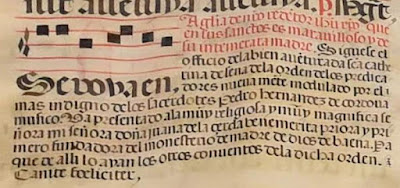 alleluya alleluya.
A glia de nro redētor ihu xpo que
en sus sanctos es marauilloso y de
su intemerata madre. Siguese el
officio dela bien auenturada sca cathe
na de sena dela orden delos predica
Seuouaen. dores nueua mēte modulado por el
mas indigno delos sacerdotes Pedro hernandes de cordoua
musico. Va presentado ala muy religiosa y muy magnifica se
ñora mi señora doña juana dela cerda benemerita priora y pri
mero fundadora del monesterio de madre de dios de baena. Pa
que de alli lo ayan los otros conuentos dela dicha orden.
feeliciter,